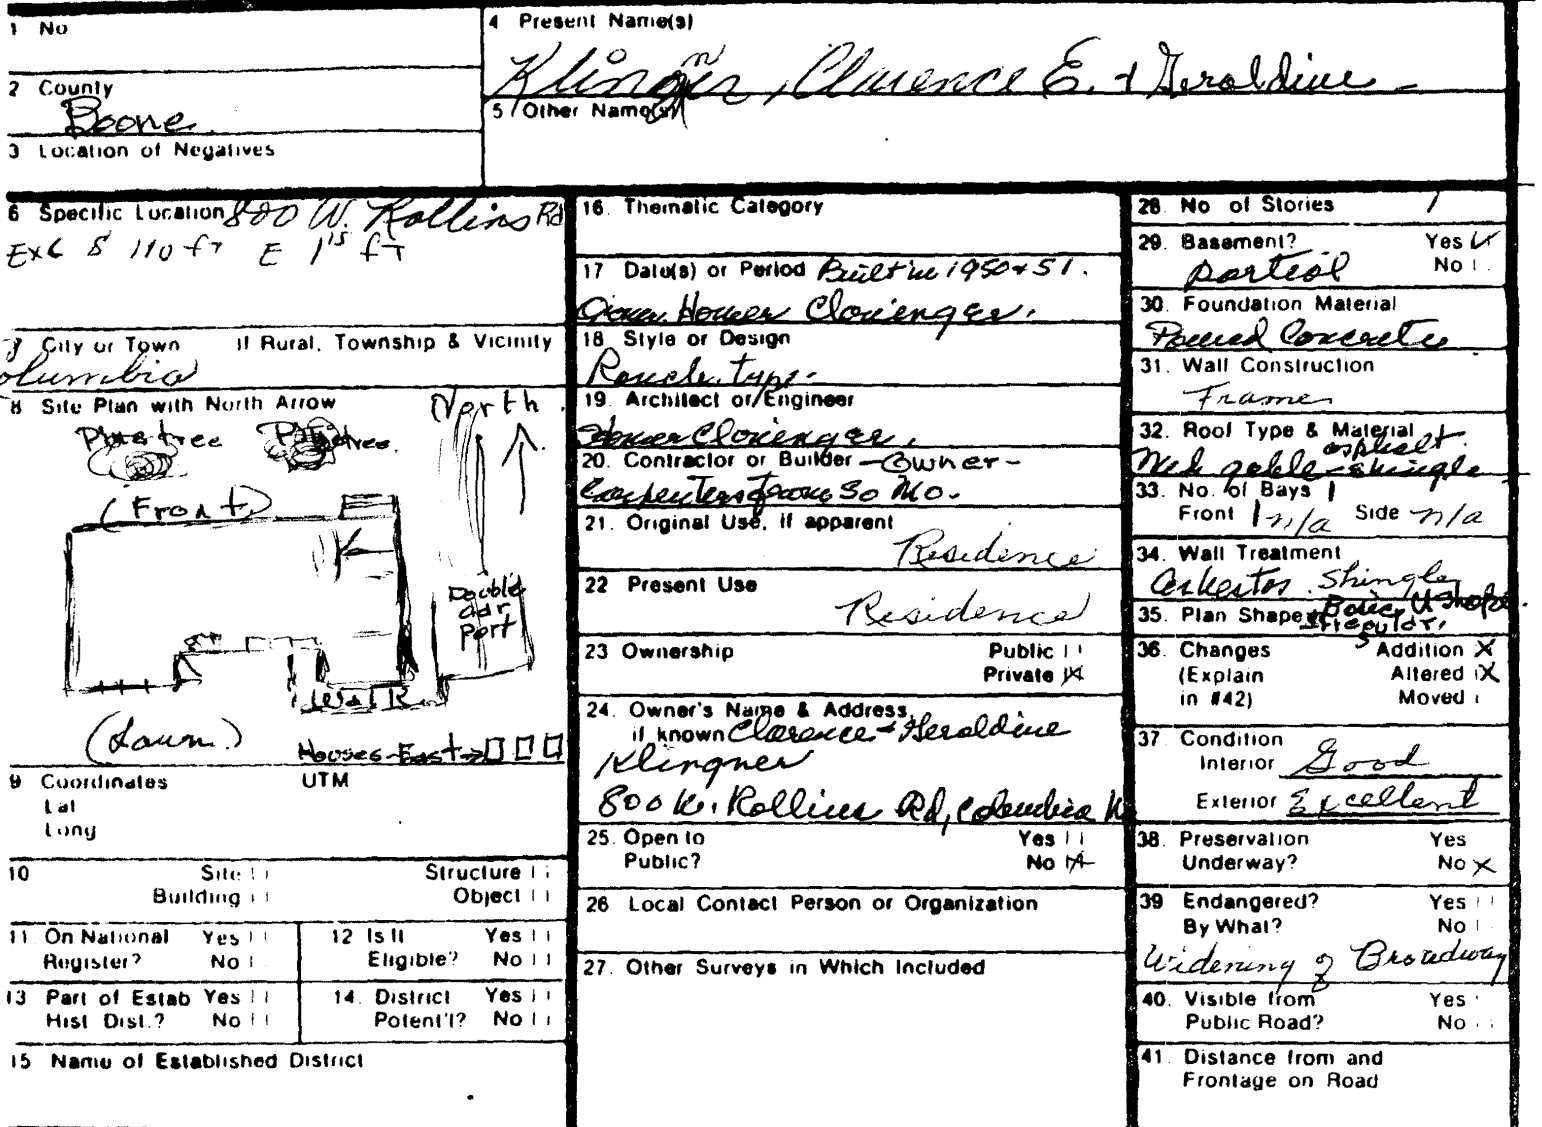 1 No
2 County
Boone
3 Location of Negatives
4 Present Name(s)
Klingner, Clarence E. + Geraldine
5 Other Name(s)
6 Specific Location 800 W. Rollins Rd
110 ft E 115 ft
7 City or Town If Rural, Township & Vicinity
Columbia
8 Site Plan with North Arrow
North
tree tree
(Front)
Double
Car
Port
(Lawn)
Houses-East→
9 Coordinates UTM
Lat
Long
10 Site Structure
Building Object
11 On National Yes
Register? No
12 Is It Yes
Eligible? No
13 Part of Estab Yes
Hist Dist.? No
14. District Yes
Potent'l? No
15 Name of Established District
16. Thematic Category
17 Date(s) or Period Built in 1950 + 51.
Homer Clovenger.
18 Style or Design
Ranch type.
19. Architect or Engineer
Homer Clovenger.
20. Contractor or Builder - Owner -
Carpenters from So Mo.
21. Original Use, if apparent
Residence
22 Present Use
Residence
23 Ownership Public
Private X
24. Owner's Name & Address,
if known Clarence + Geraldine
Klingner
800 W. Rollins Rd, Columbia
25. Open to Yes
Public? No X
26 Local Contact Person or Organization
27. Other Surveys in Which Included
28. No of Stories 1
29. Basement? Yes ✓
partial No
30. Foundation Material
Poured Concrete
31. Wall Construction
Frame
32. Roof Type & Material
gable - asphalt shingle
33. No. of Bays
Front n/a Side n/a
34. Wall Treatment
Asbestos Shingle
35. Plan Shape Basic U shape.
Irregular.
36. Changes Addition X
(Explain Altered X
in #42) Moved
37 Condition
Interior Good
Exterior Excellent
38. Preservation Yes
Underway? No X
39 Endangered? Yes
By What? No
Widening of Broadway
40. Visible from Yes
Public Road? No
41. Distance from and
Frontage on Road